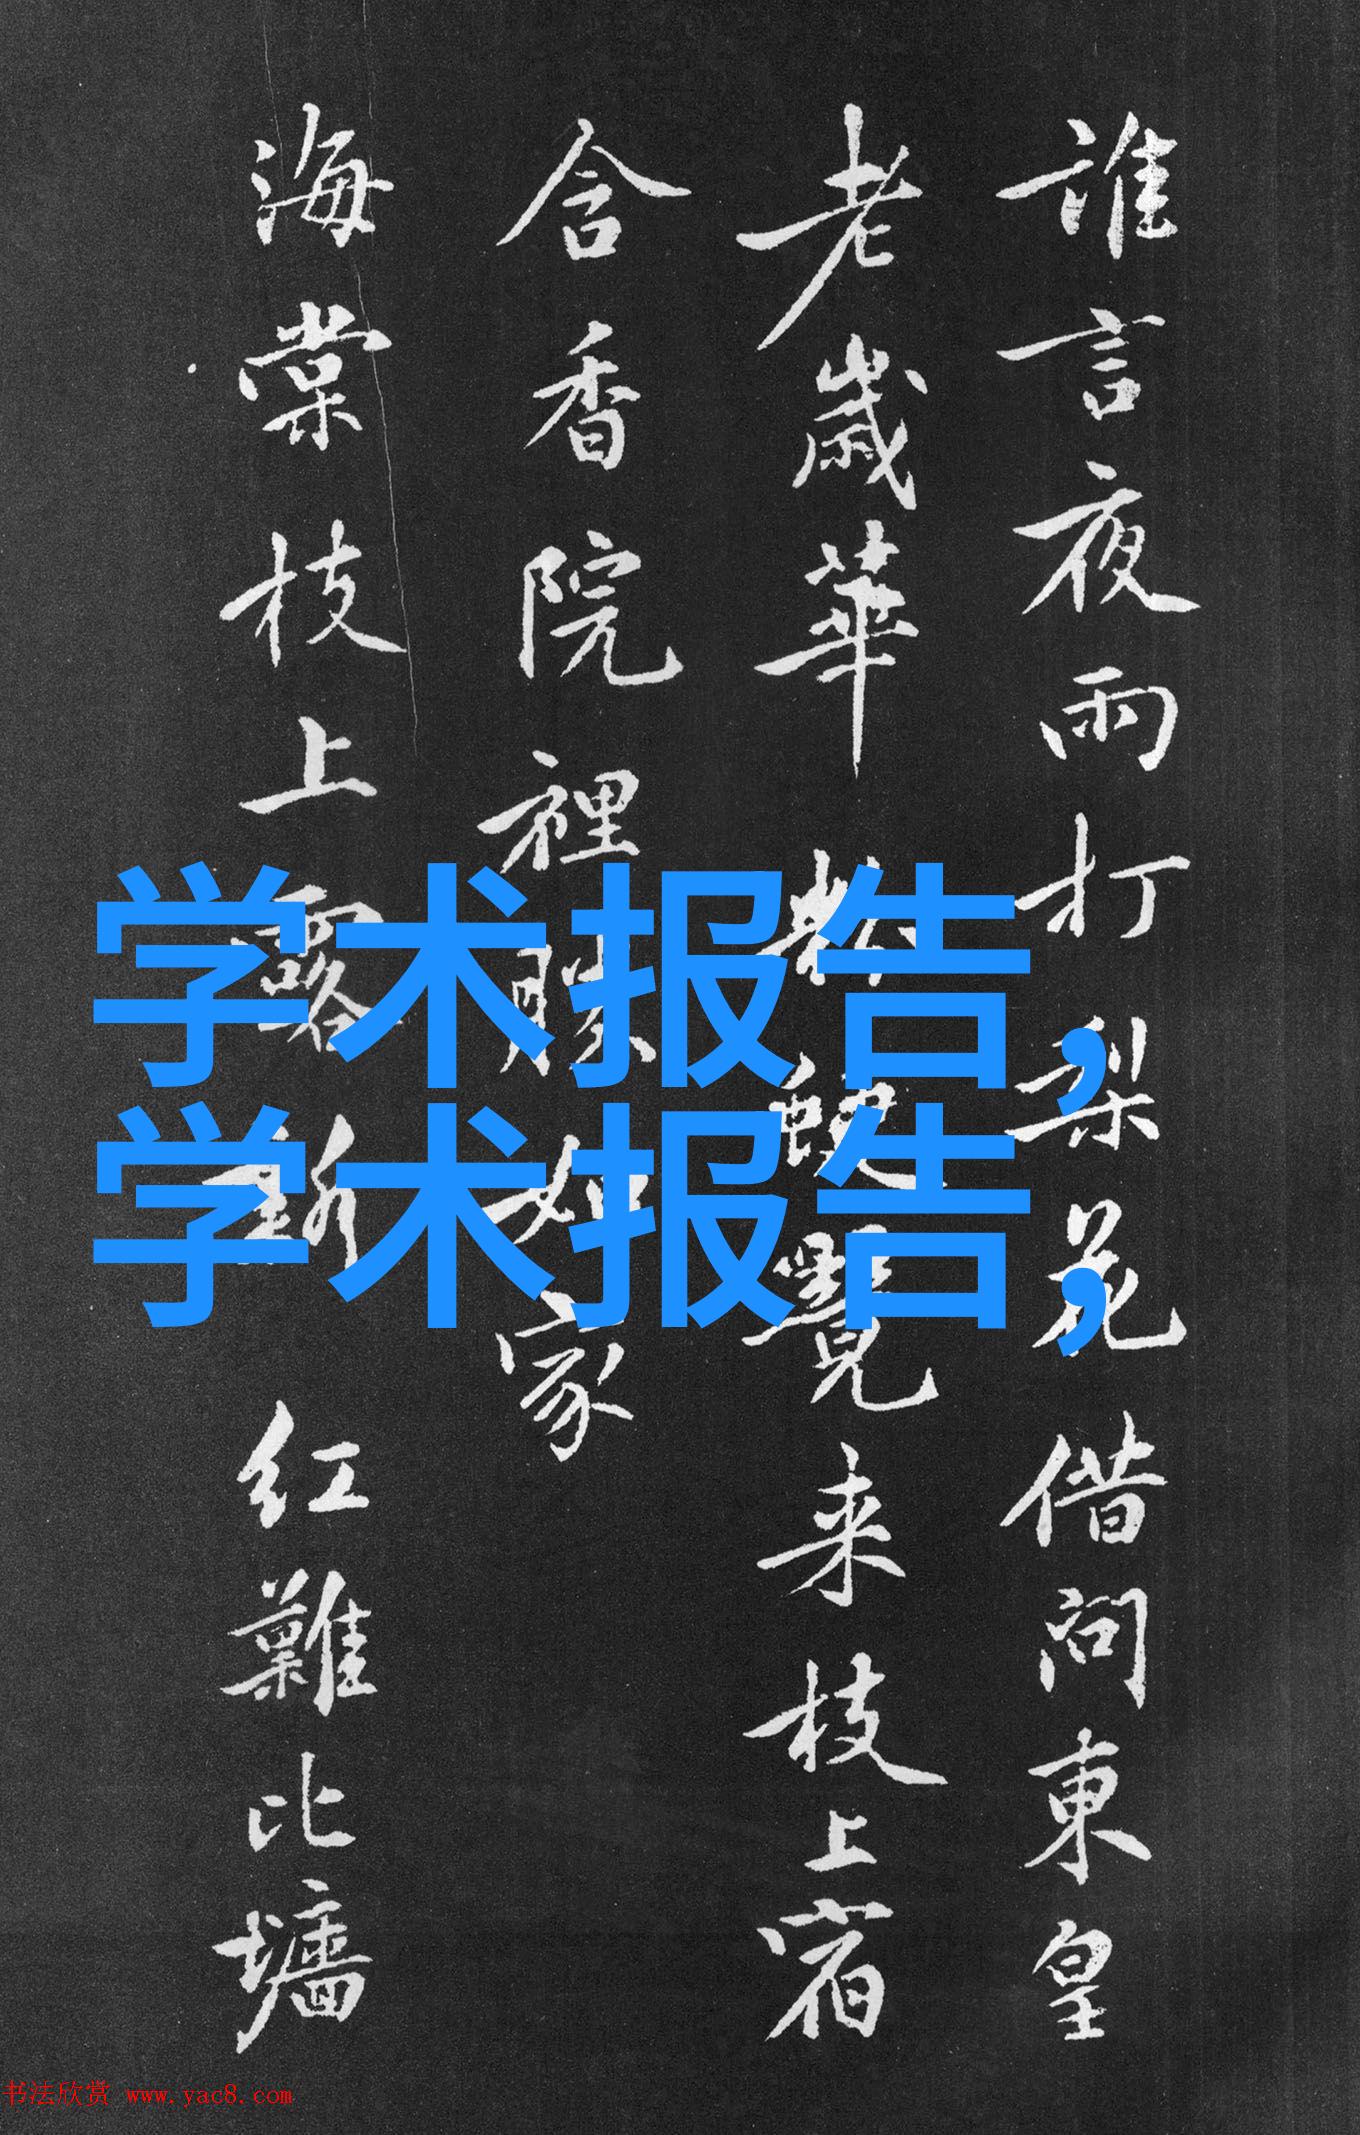 誰言夜雨打梨花借問東皇
老歲華覺来枝上宿
含香院裡家
海棠枝上露红難比墻
学术报告,
学术报告,
书法欣赏 www.yac8.com